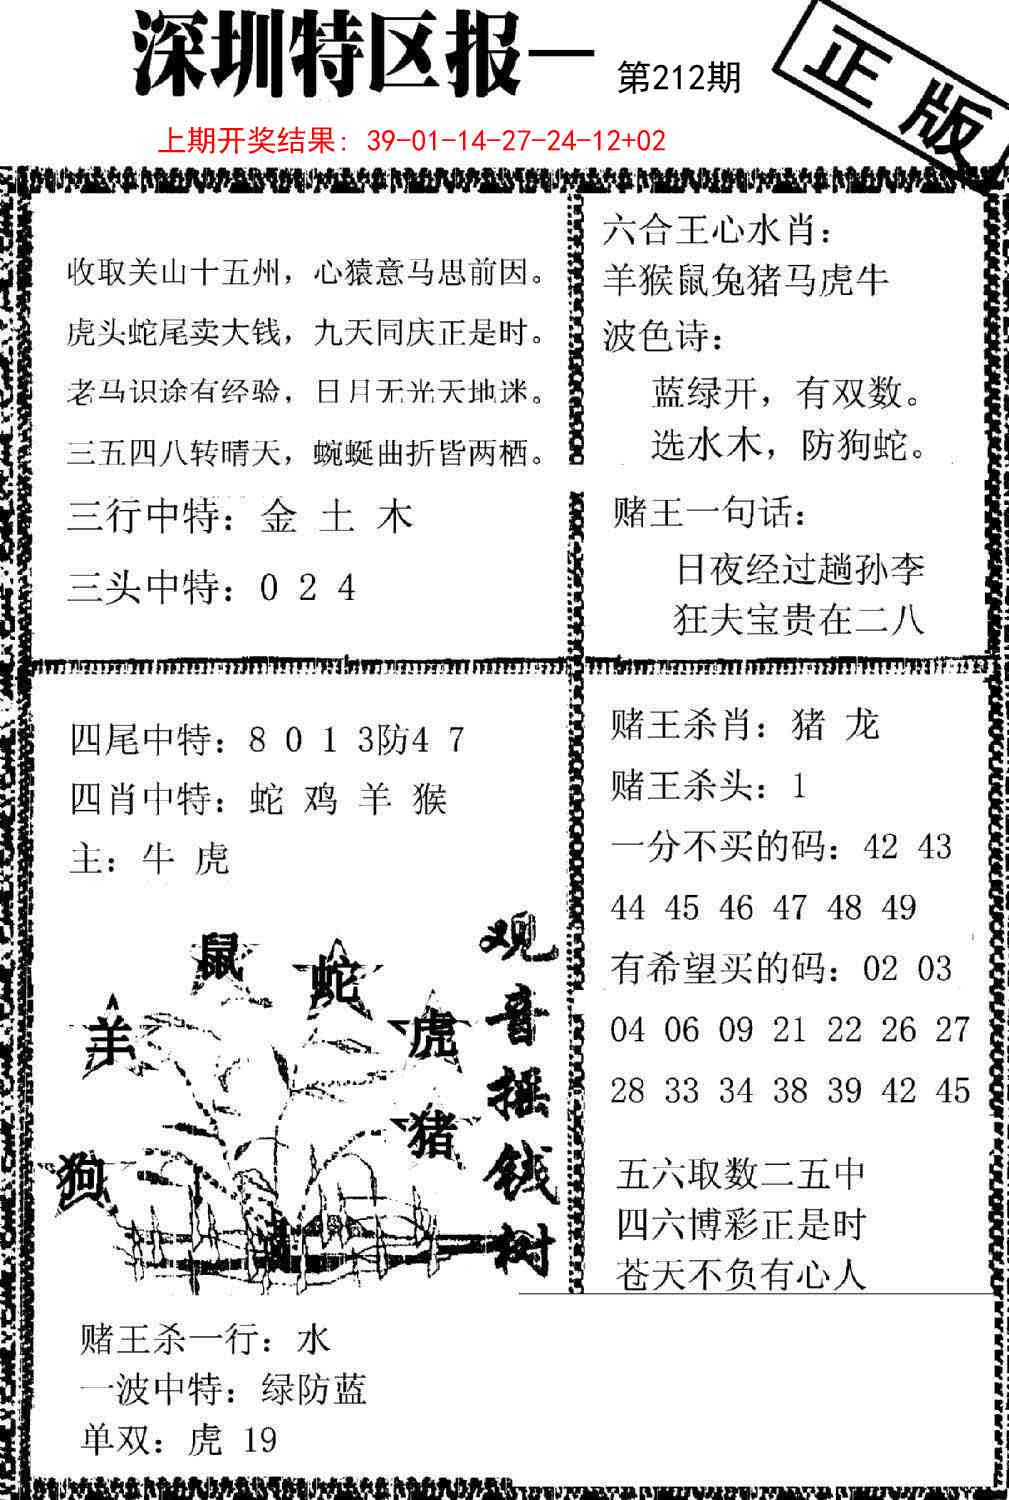 深圳特区报一
第212期
正版
上期开奖结果：39-01-14-27-24-12+02
收取关山十五州，心猿意马思前因。
虎头蛇尾卖大钱，九天同庆正是时。
老马识途有经验，日月无光天地迷。
三五四八转晴天，蜿蜒曲折皆两栖。
三行中特：金 土 木
三头中特：0 2 4
六合王心水肖：
羊猴鼠兔猪马虎牛
波色诗：
蓝绿开，有双数。
选水木，防狗蛇。
赌王一句话：
日夜经过趟孙李
狂夫宝贵在二八
四尾中特：8 0 1 3防4 7
四肖中特：蛇 鸡 羊 猴
主：牛 虎
鼠
蛇
羊
虎
猪
狗
观音摇钱树
赌王杀肖：猪 龙
赌王杀头：1
一分不买的码：42 43
44 45 46 47 48 49
有希望买的码：02 03
04 06 09 21 22 26 27
28 33 34 38 39 42 45
五六取数二五中
四六博彩正是时
苍天不负有心人
赌王杀一行：水
一波中特：绿防蓝
单双：虎 19